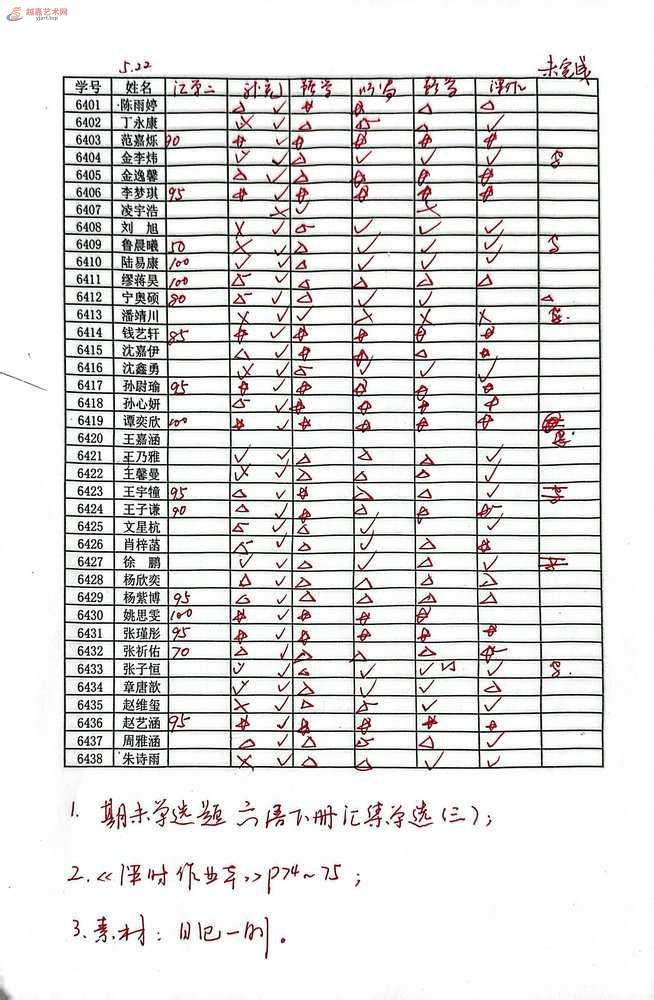 越嘉艺术网
yjart.top
5.22 未完成
学号 姓名
6401 陈雨婷 △ ✓ △ △
6402 丁永康 × ✓ △ ✓
6403 范嘉烁 90 ✓
6404 金李炜 ✓ ✓ △ ✓ ✓ ✓
6405 金逸馨 △ ✓ △
6406 李梦琪 95 ✓
6407 凌宇浩 × ✓ ×
6408 刘旭 × ✓ △ ✓ ✓ ✓
6409 鲁晨曦 50 × ✓ △ ✓ ✓ ✓
6410 陆易康 100 ✓ ✓ △ ✓ ✓ ✓
6411 缪蒋昊 100 △ ✓ △ △ △ △
6412 宁奥硕 80 △ ✓ △ ✓ ✓ △
6413 潘靖川 × ✓ ✓ × × ×
6414 钱艺轩 85 ✓
6415 沈嘉伊 △ ✓ △
6416 沈鑫勇 × ✓ △ ✓ ✓ ✓
6417 孙尉瑜 95 ✓
6418 孙心妍 △ ✓
6419 谭奕欣 100 ✓
6420 王嘉涵
6421 王乃雅 ✓ ✓ △ △ △ ✓
6422 王馨曼 × ✓ △ △ △ ✓
6423 王宇犝 95 △ ✓ △ △ ✓
6424 王子谦 90 △ ✓ △
6425 文星杭 △ ✓ △ ✓ ✓
6426 肖梓菡 △ ✓ △ ✓ △
6427 徐鹏 ✓ ✓ △ ✓ △ ✓
6428 杨欣奕 △ ✓ △ △ △ △
6429 杨紫博 95 △ ✓ △ △ △ △
6430 姚思雯 100 ✓
6431 张瑾彤 95 ✓
6432 张祈佑 70 △ ✓ △ △ △
6433 张子恒 ✓ ✓ △ ✓ ✓ ✓
6434 章唐歆 ✓ ✓ △ ✓ ✓ △
6435 赵维玺 × ✓ △ △ ✓ ✓
6436 赵艺涵 95 ✓
6437 周雅涵 △ ✓ △ △ △ ✓
6438 朱诗雨 × ✓ △ △ ✓ ✓
1. 期末学选题 六语下册汇集学选(三);
2.《课时作业本》P74~75;
3.素材:日记一则。